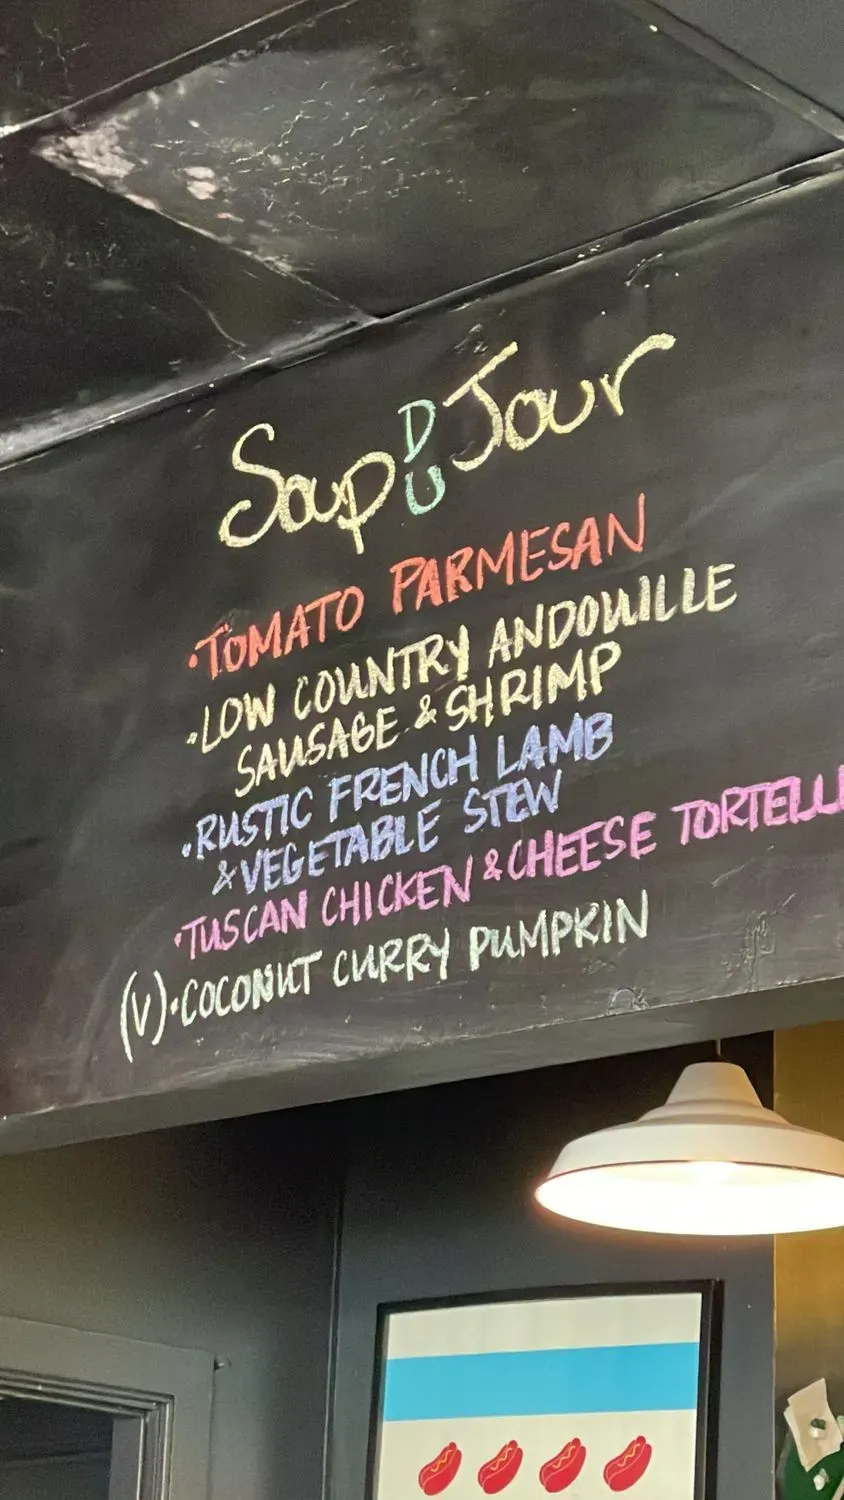 Soup DU Jour
·TOMATO PARMESAN
·LOW COUNTRY ANDOUILLE
SAUSAGE & SHRIMP
·RUSTIC FRENCH LAMB
& VEGETABLE STEW
·TUSCAN CHICKEN & CHEESE TORTELLI
(V)·COCONUT CURRY PUMPKIN